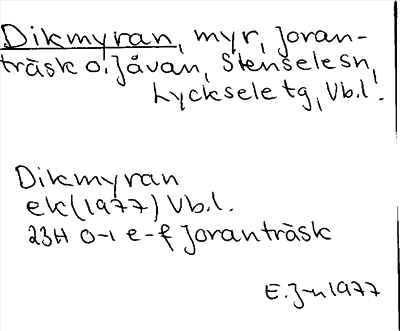 Dikmyran, myr, Joran-
träsk o. Jåvan, Stensele sn,
Lycksele tg, Vb.l.
Dikmyran
ek (1977) Vb.l.
23H 0-1 e-f Joranträsk
E. J-n 1977